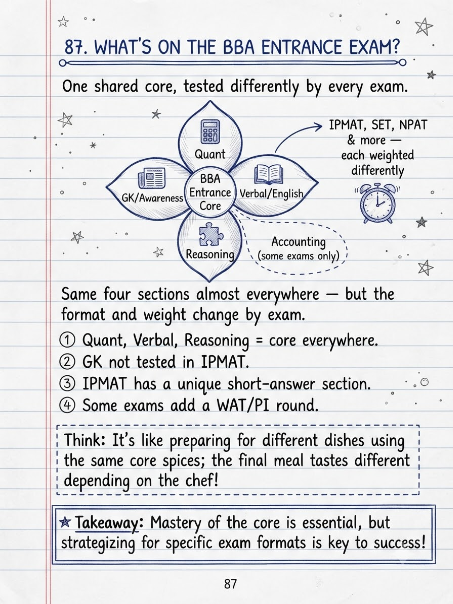 87. WHAT'S ON THE BBA ENTRANCE EXAM?
One shared core, tested differently by every exam.
Quant
IPMAT, SET, NPAT
& more —
each weighted
differently
GK/Awareness
BBA
Entrance
Core
Verbal/English
Reasoning
Accounting
(some exams only)
Same four sections almost everywhere — but the
format and weight change by exam.
① Quant, Verbal, Reasoning = core everywhere.
② GK not tested in IPMAT.
③ IPMAT has a unique short-answer section.
④ Some exams add a WAT/PI round.
Think: It's like preparing for different dishes using
the same core spices; the final meal tastes different
depending on the chef!
★ Takeaway: Mastery of the core is essential, but
strategizing for specific exam formats is key to success!
87